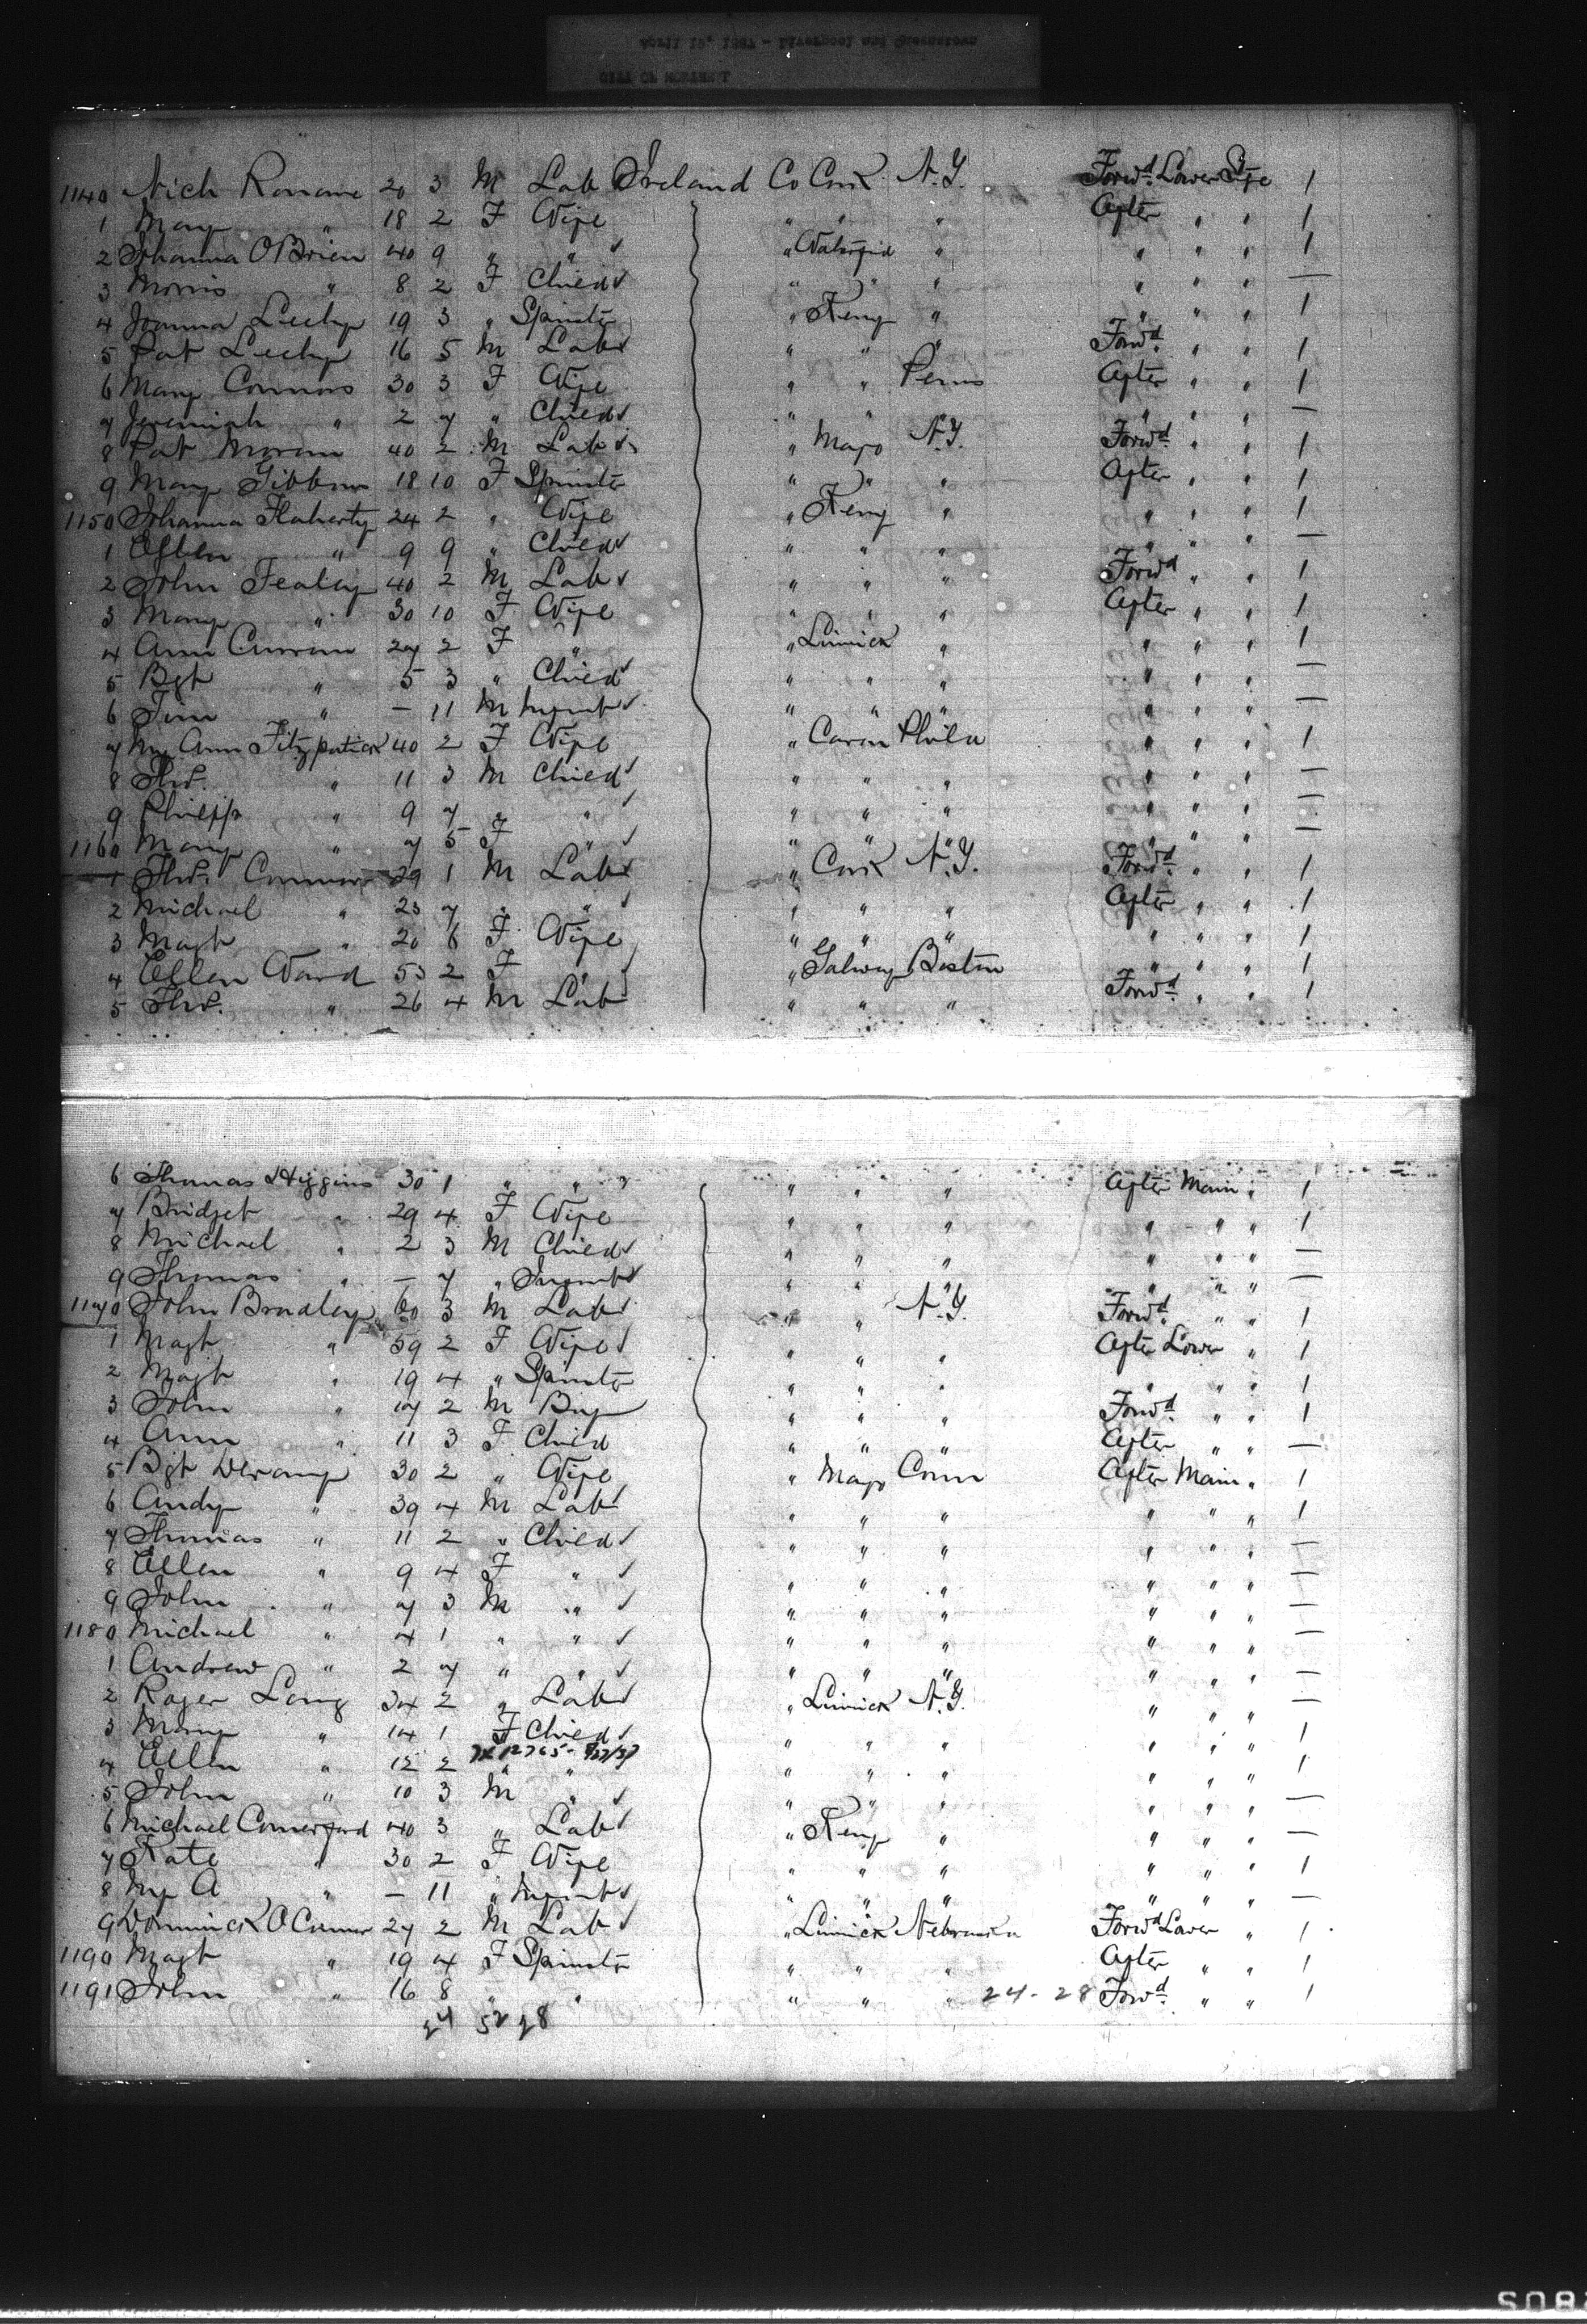 April 19, 1887 - Liverpool and Queenstown
CITY OF
1140 Nich Ronane 20 3 M Lab Ireland Co Cork N.Y. Forwd. Lower Stge 1
1 Mary " 18 2 F Wife " " " After " " 1
2 Johanna O'Brien 40 9 " " " " " " " 1
3 Morris " 8 2 F Child " " " " " " —
4 Joanna Leehy 19 3 " Spinster " Kerry " " " " 1
5 Pat Leehy 16 5 M Lab " " " Forwd. " " 1
6 Mary Connors 30 3 F Wife " " Penns After " " 1
7 Jeremiah " 2 7 " Child " " " " " —
8 Pat Moran 40 2 M Lab " Mayo N.Y. Forwd. " " 1
9 Mary Gibbons 18 10 F Spinster " " " After " " 1
1150 Johanna Flaherty 24 2 " Wife " Kerry " " " " 1
1 Ellen " 9 9 " Child " " " " " " —
2 John Fealey 40 2 M Lab " " " Forwd " " 1
3 Mary " 30 10 F Wife " " " After " " 1
4 Ann Curran 27 2 F " " Limrick " " " " 1
5 Bgt " 5 3 " Child " " " " " " —
6 Tim " — 11 M Infant " " " " " " —
7 My Ann Fitzpatrick 40 2 F Wife " Cavan Phila " " " 1
8 Thos. " 11 3 M Child " " " " " " —
9 Philipp " 9 7 " " " " " " " " —
1160 Mary " 7 5 F " " " " " " " —
1 Thos. Connors 29 1 M Lab " Cork N.Y. Forwd. " " 1
2 Michael " 25 7 " " " " " After " " 1
3 Magt " 20 6 F Wife " " " " " " 1
4 Ellen Ward 53 2 F " " Galway Boston " " " 1
5 Thos. " 26 4 M Lab " " " Forwd. " " 1
6 Thomas Higgins 30 1 " " " " " After Main " 1
7 Bridget " 29 4 F Wife " " " " " " 1
8 Michael " 2 3 M Child " " " " " " —
9 Thomas " — 7 " Infant " " " " " " —
1170 John Bradley 60 3 M Lab " " N.Y. Forwd. " " 1
1 Magt " 59 2 F Wife " " " After Lower " 1
2 Magt " 19 4 " Spinster " " " " " " 1
3 John " 17 2 M Boy " " " Forwd. " " 1
4 Ann " 11 3 F Child " " " After " " —
5 Bgt 30 2 " Wife " Mayo Conn After Main " 1
6 Andy " 39 4 M Lab " " " " " " 1
7 Thomas " 11 2 " Child " " " " " " —
8 Ellen " 9 4 F " " " " " " " —
9 John " 7 3 M " " " " " " " —
1180 Michael " 4 1 " " " " " " " " —
1 Andrew " 2 7 " " " " " " " " —
2 Roger Long 34 2 " Lab " Limrick N.Y. " " " —
3 Mary " 14 1 F Child " " " " " " 1
4 Ellen " 12 2 " " " " " " " " 1
5 John " 10 3 M " " " " " " " —
6 Michael Comerford 40 3 " Lab " Kerry " " " " —
7 Kate " 30 2 F Wife " " " " " " 1
8 My A " — 11 " Infant " " " " " " —
9 Dominick O'Connor 27 2 M Lab " Limrick Nebraska Forwd Lower " 1
1190 Magt " 19 4 F Spinster " " " After " " 1
1191 John " 16 8 " " " " " 24-28 Forwd. " " 1
24 52 28